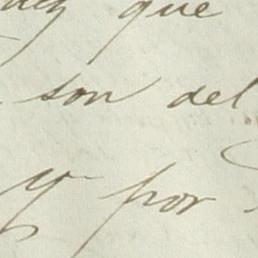 que
son del
y por